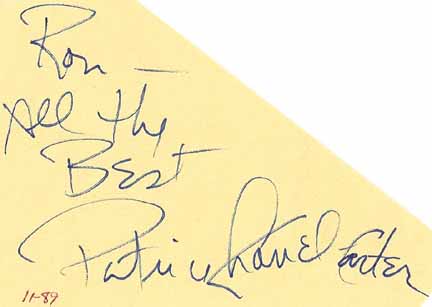 Ron —
All the
Best
Patrice Chanel Carter
11-89